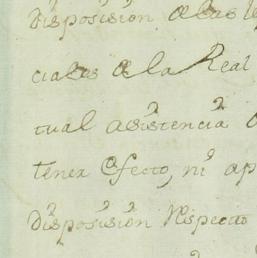 Disposisión de las
ciales de la Real
tual asistencia
tener efecto, ni ap
Disposisión Respecto